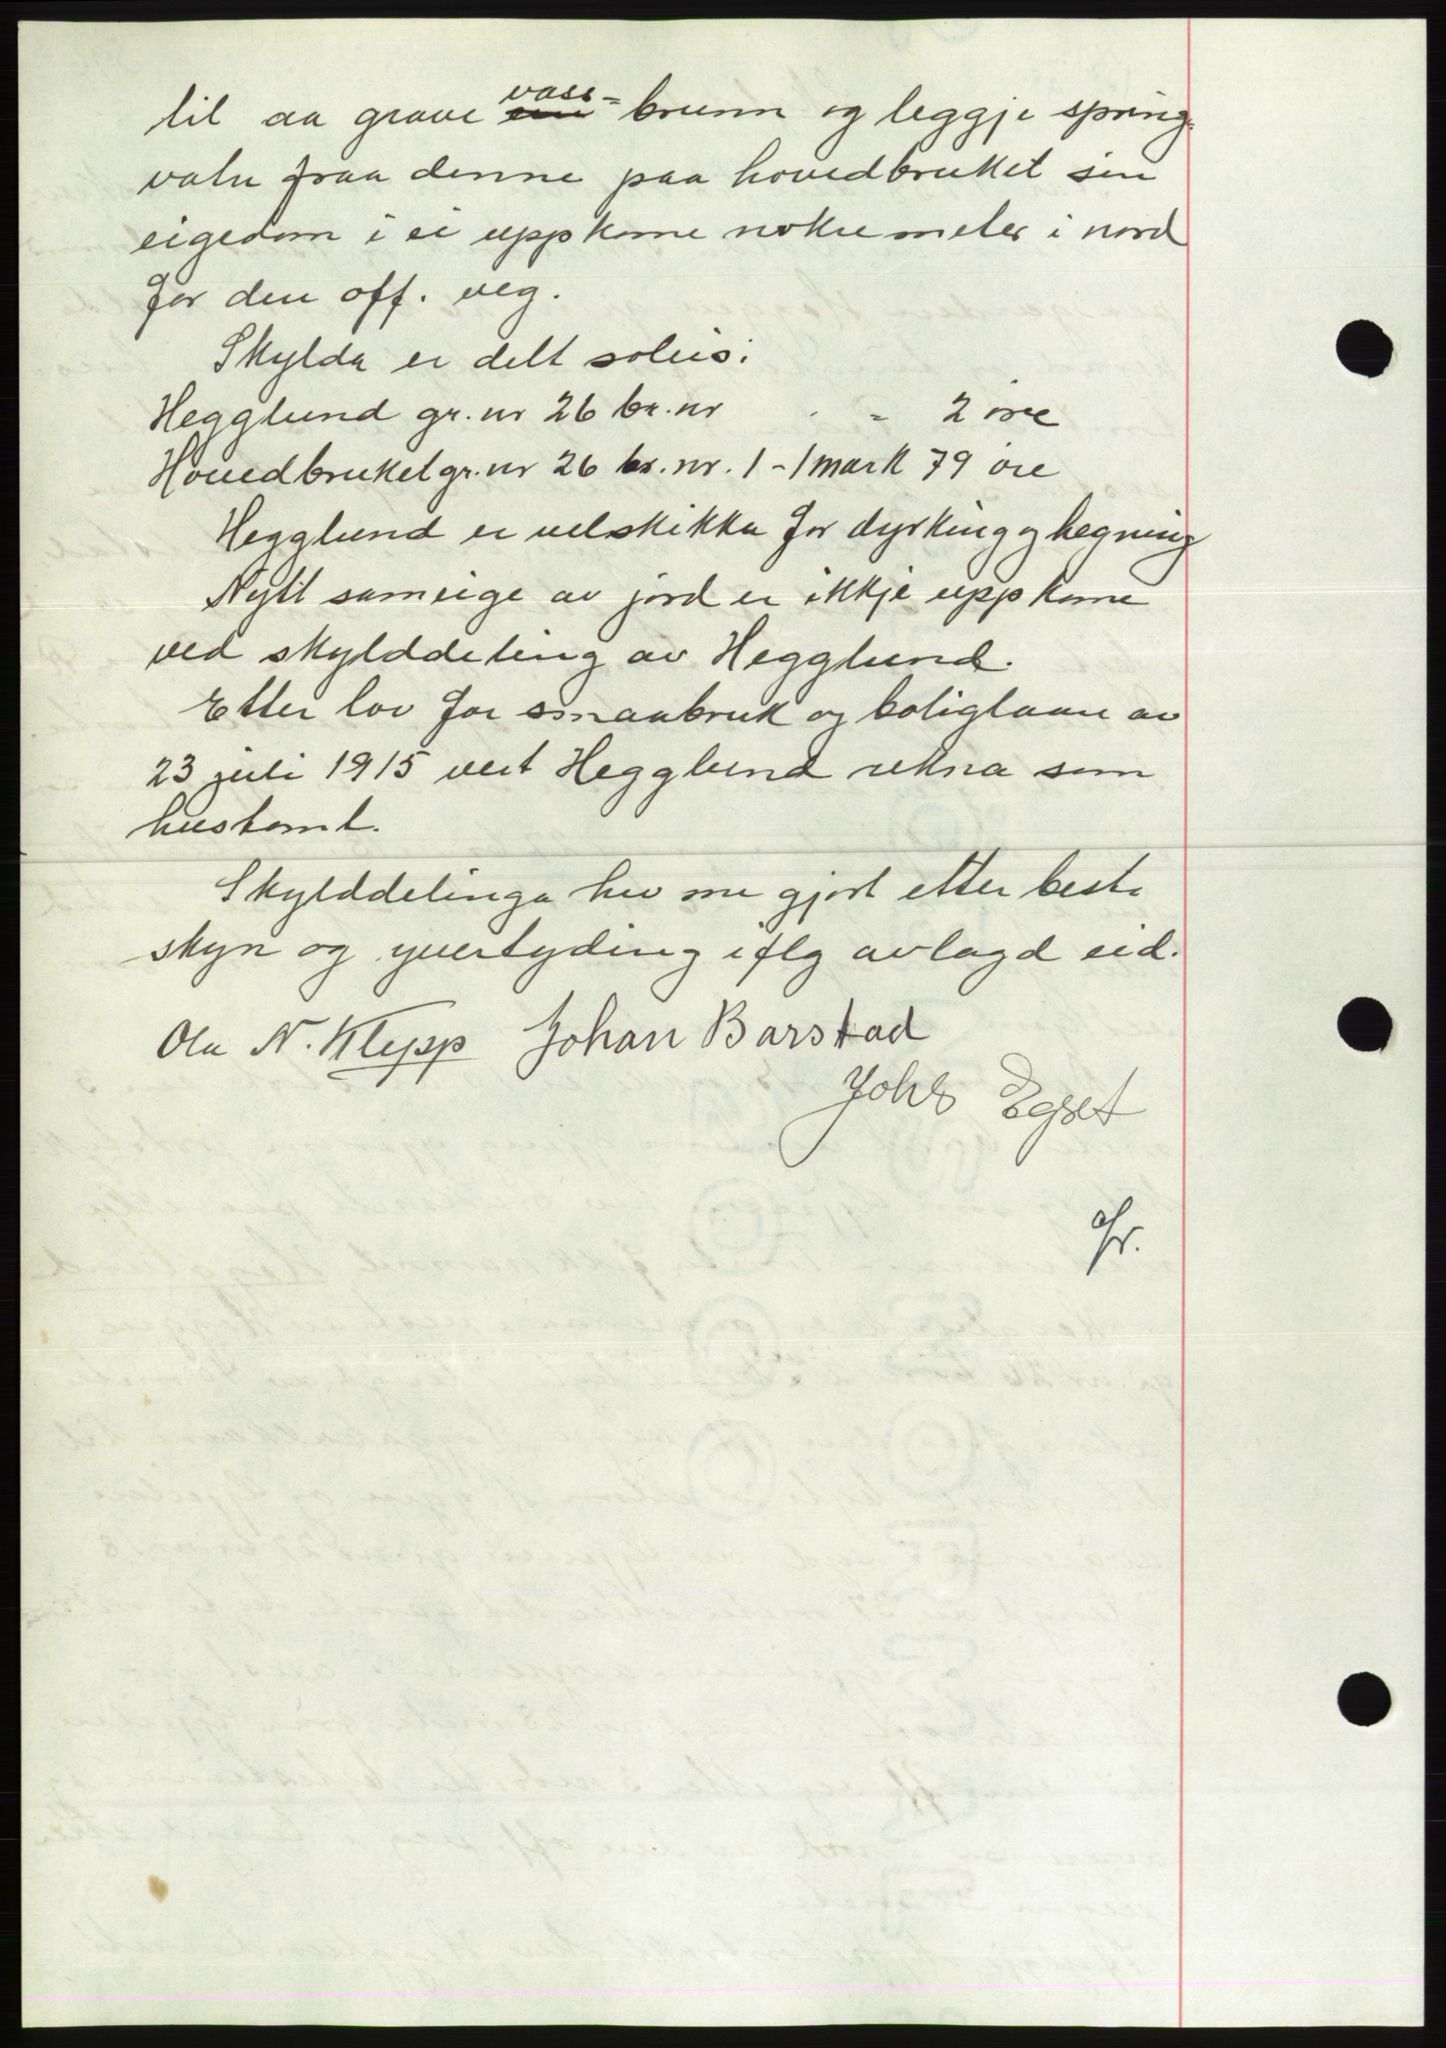 til aa grave vass- brunn og leggje spring-
vatn fraa denne paa hovedbruket sin
eigedom i ei uppkome nokre meter i nord
for den off. veg.
Skylda er delt soleis:
Hegglund gr. nr 26 br. nr . - 2 øre
Hovedbruket gr. nr 26 br. nr. 1 - 1 mark 79 øre
Hegglund er velskikka for dyrking og hegning
Nytt sameige av jord er ikkje uppkome
ved skylddeling av Hegglund.
Etter lov for smaabruk og boliglaan av
23 juli 1915 vert Hegglund rekna som
hustomt.
Skylddelinga hev me gjort etter beste
skyn og yvertyding iflg avlagd eid.
Ola N. Klepp Johan Barstad
Johs Egset